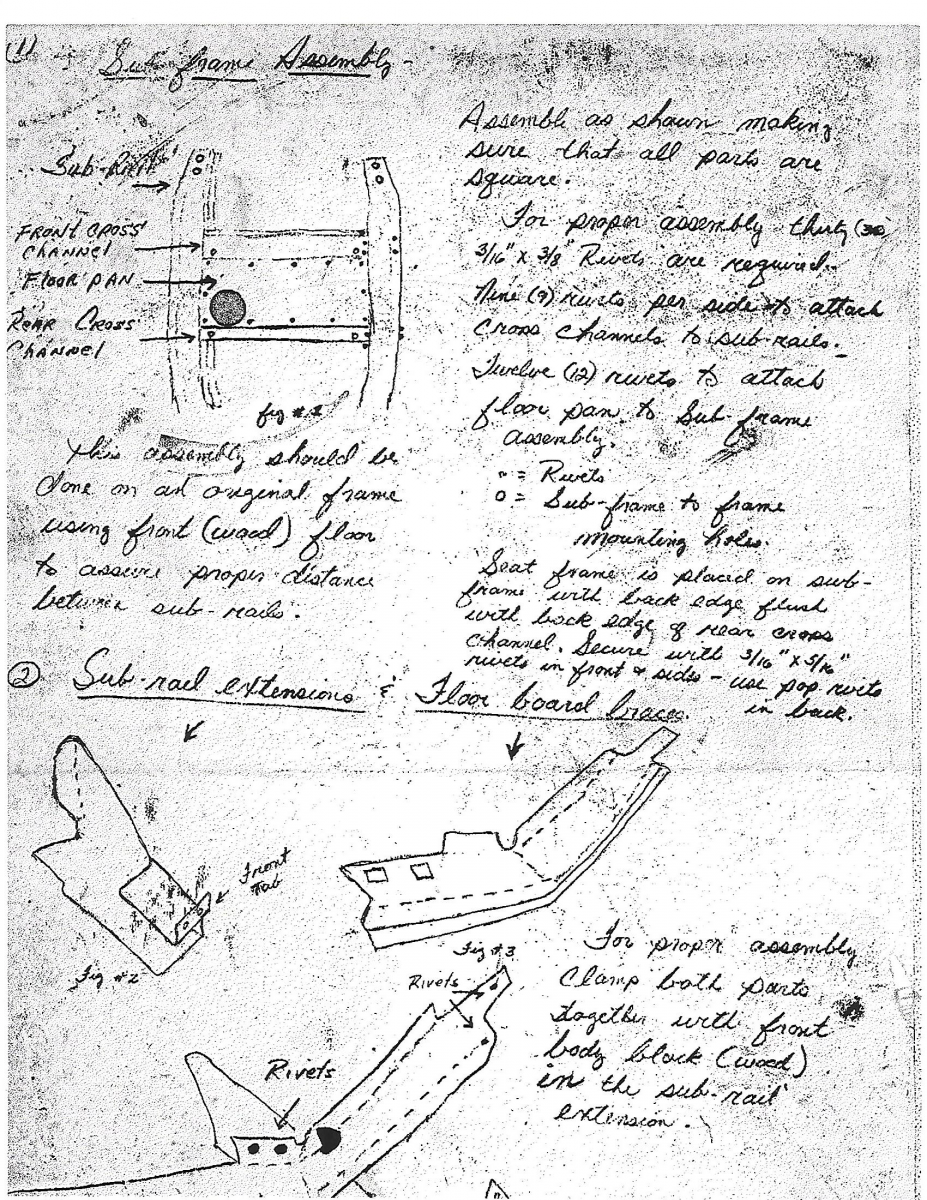 (1)
Sub-frame Assembly -
Sub-Rail
FRONT CROSS
CHANNEL
FLOOR PAN
REAR CROSS
CHANNEL
fig #1
This assembly should be
done on an original frame
using front (wood) floor
to assure proper distance
between sub-rails.
Assemble as shown making
sure that all parts are
square.
For proper assembly thirty (30)
3/16" x 3/8" Rivets are required.
Nine (9) rivets per side to attach
cross channels to sub-rails.
Twelve (12) rivets to attach
floor pan to Sub-frame
assembly.
• = Rivets
o = Sub-frame to frame
mounting holes.
Seat frame is placed on sub-
frame with back edge flush
with back edge of rear cross
channel. Secure with 3/16" x 5/16"
rivets in front & sides - use pop rivets
in back.
② Sub-rail extensions & Floor board braces.
Front
Tab
Fig #2
Fig #3
Rivets
Rivets
For proper assembly
Clamp both parts
together with front
body block (wood)
in the sub-rail
extension.